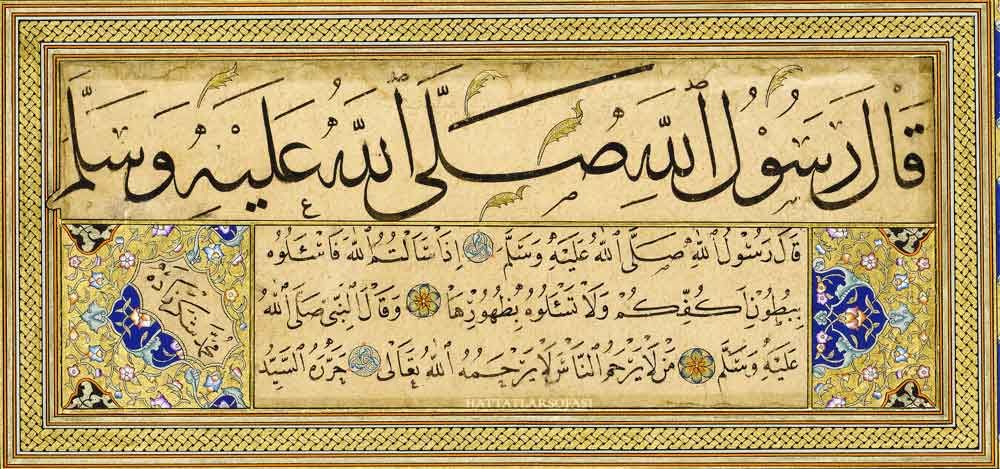 قَالَ رَسُوْلُ اللهِ صَلَّى اللهُ عَلَيْهِ وَسَلَّمَ
قَالَ رَسُوْلُ اللهِ صَلَّى اللهُ عَلَيْهِ وَسَلَّمَ اِذَا سَاَلْتُمُ اللهَ فَاسْئَلُوهُ
بِبُطُوْنِ اَكُفِّكُمْ وَلَا تَسْئَلُوهُ بِظُهُوْرِهَا وَقَالَ النَّبِىُّ صَلَّى اللهُ
عَلَيْهِ وَسَلَّمَ مَنْ لَا يَرْحَمُ النَّاسَ لَا يَرْحَمُهُ اللهُ تَعَالٰى حَرَّرَهُ السَّيِّدُ
محمد شكرزاده
HATTATLARSOFASI